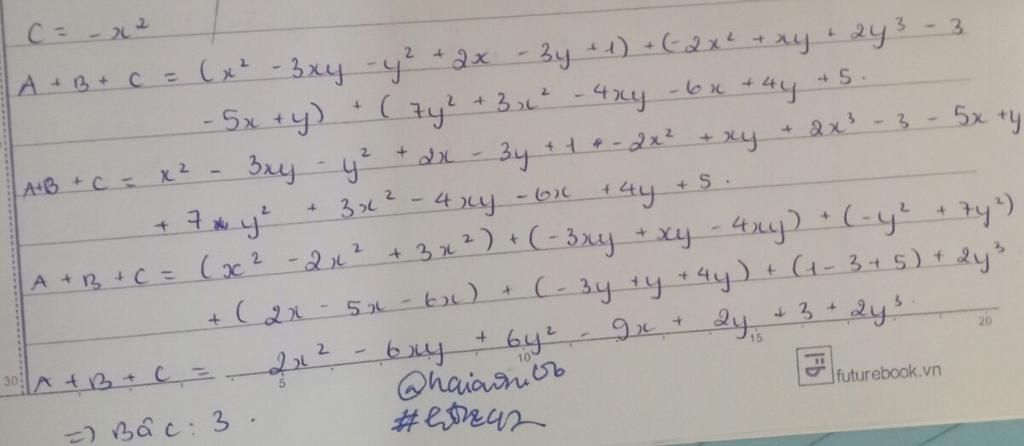 C = -x²
A + B + C = (x² - 3xy - y² + 2x - 3y + 1) + (-2x² + xy + 2y³ - 3
- 5x + y) + (7y² + 3x² - 4xy - 6x + 4y + 5.
A+B + C = x² - 3xy - y² + 2x - 3y + 1 + -2x² + xy + 2x³ - 3 - 5x + y
+ 7 y² + 3x² - 4xy - 6x + 4y + 5.
A + B + C = (x² - 2x² + 3x²) + (-3xy + xy - 4xy) + (-y² + 7y²)
+ (2x - 5x - 6x) + (-3y + y + 4y) + (1 - 3 + 5) + 2y³
A + B + C = 2x² - 6xy + 6y² - 9x + 2y + 3 + 2y³.
30 5 10 15 20
=> Bâc : 3 .
futurebook.vn